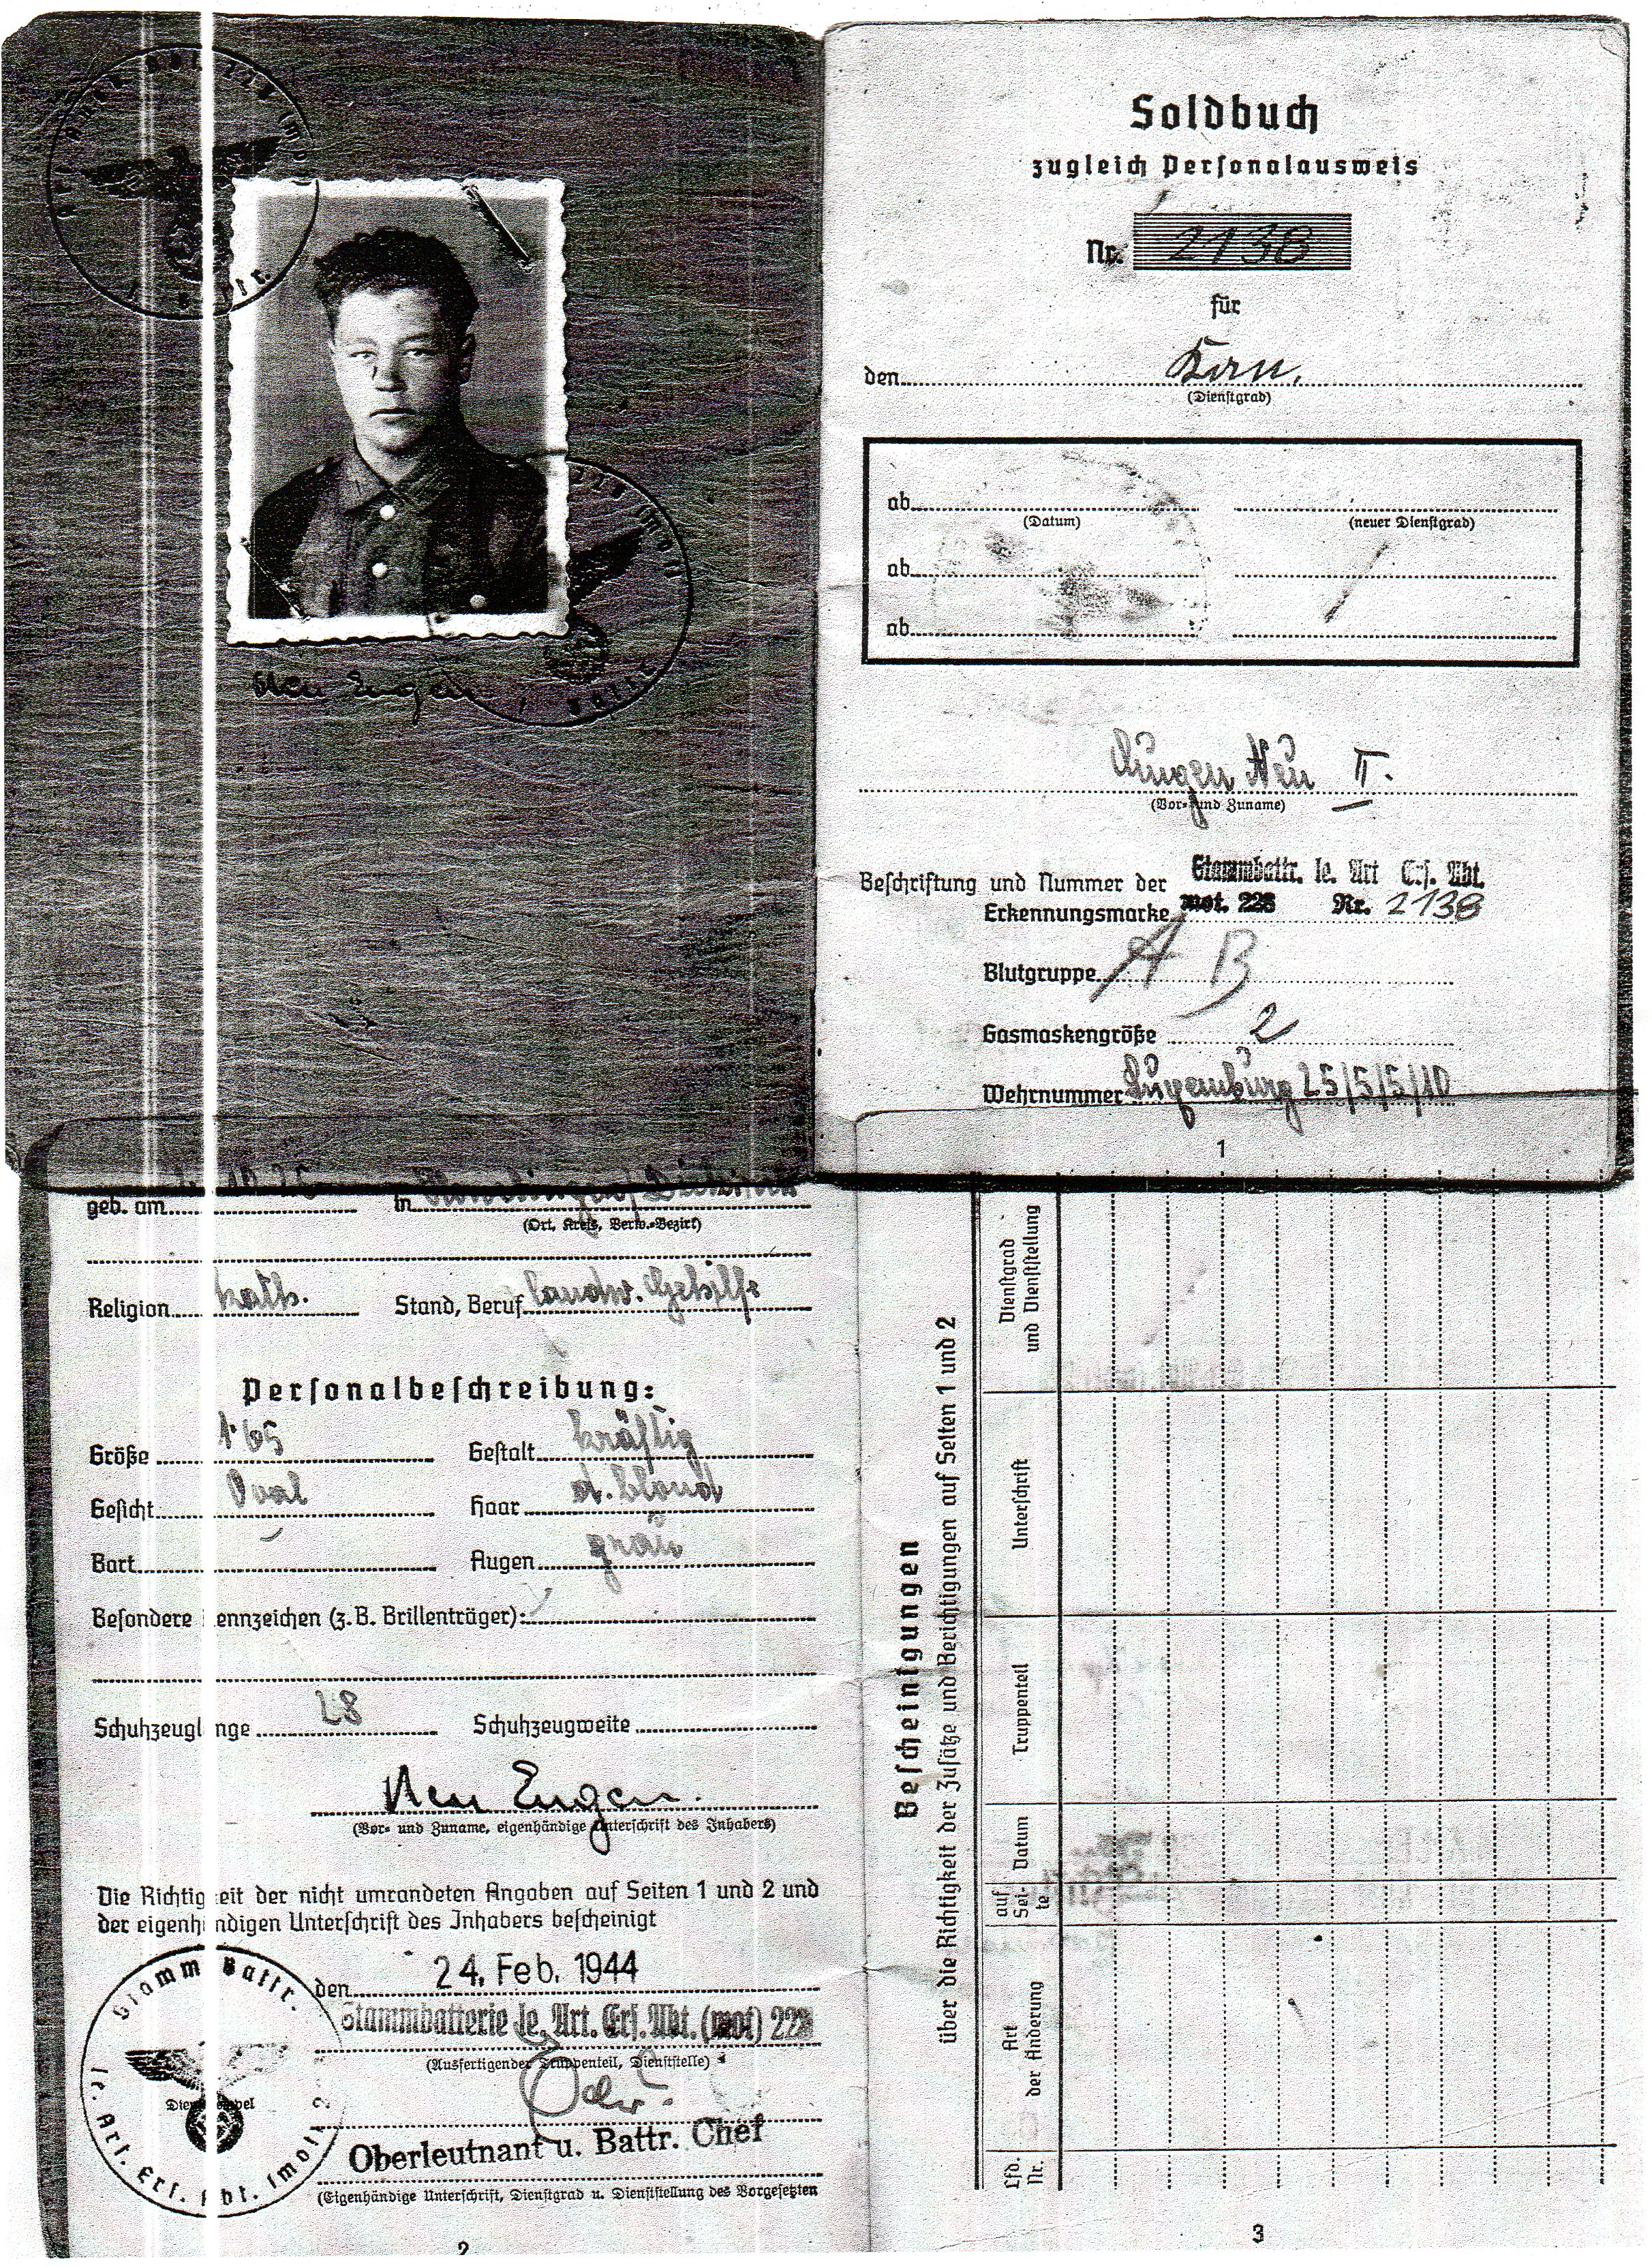 Neu Eugen
Soldbuch
zugleich Personalausweis
Nr. 2138
für
den Kan.
(Dienstgrad)
ab
(Datum) (neuer Dienstgrad)
ab
ab
Eugen Neu II.
(Vor- und Zuname)
Beschriftung und Nummer der Stammbattr. le. Art Ers. Abt.
Erkennungsmarke mot. 228 Nr. 2138
Blutgruppe A B
Gasmaskengröße 2
Wehrnummer Luxemburg 25/5/5/10
1
geb. am in
(Ort, Kreis, Verw.-Bezirk)
Religion kath. Stand, Beruf landw. Gehilfe
Personalbeschreibung:
Größe 1.65 Gestalt kräftig
Gesicht Oval Haar d. blond
Bart – Augen grau
Besondere ennzeichen (z. B. Brillenträger):
Schuhzeugl nge 28 Schuhzeugweite
Neu Eugen.
(Vor- und Zuname, eigenhändige Unterschrift des Inhabers)
Die Richtig eit der nicht umrandeten Angaben auf Seiten 1 und 2 und
der eigenh ndigen Unterschrift des Inhabers bescheinigt
den 24. Feb. 1944
Stammbatterie le. Art. Ers. Abt. (mot) 228
(Ausfertigender Truppenteil, Dienststelle)
Oberleutnant u. Battr. Chef
(Eigenhändige Unterschrift, Dienstgrad u. Dienststellung des Vorgesetzten
Stamm Battr.
le. Art. Ers. Abt. (mot)
2
Bescheinigungen
über die Richtigkeit der Zusätze und Berichtigungen auf Seiten 1 und 2
Lfd. Nr.
Art der Änderung
auf Sei- te
Datum
Truppenteil
Unterschrift
Dienstgrad und Dienststellung
3